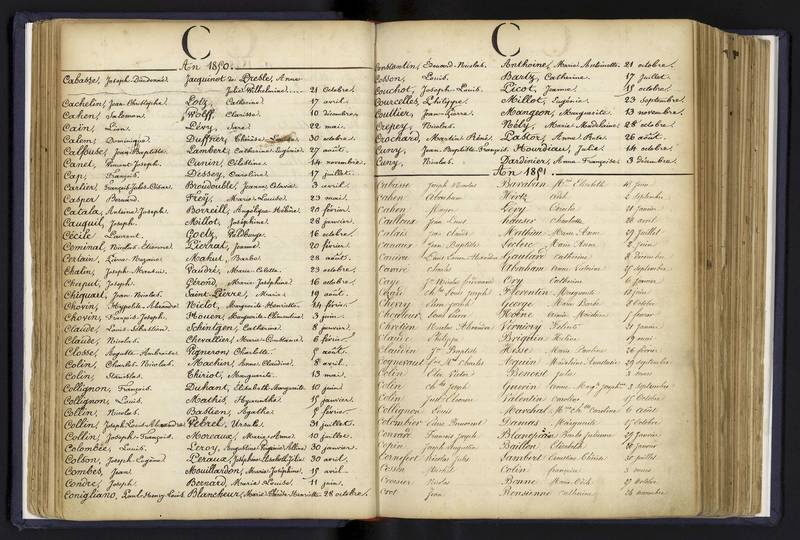 C
An 1850.
Cabasse, Joseph Dieudonné Jacquinot de Presle, Anne
Julie Wilhelmine 21 octobre.
Cachelin, Jean Christophe Lotz, Catherine 17 avril.
Cahen, Salomon Wolff, Clarisse 10 décembre.
Caïn, Léon Lévy, Sara 22 mai.
Calem, Dominique Duffner, Louise 30 octobre.
Calbuse, Jean Baptiste Lambert, Catherine Eugénie 27 août.
Canel, Vincent Joseph Cunin, Célestine 14 novembre.
Cap, François Dessey, Caroline 17 juillet.
Cartier, François Jules César Broudouble, Jeanne 3 avril
Casper, Bernard Frey, Marie Louise 23 mai.
Catala, Antoine Joseph Borreill, Angélique Hélène 20 février
Cauquil, Joseph Millot, Joséphine 28 janvier.
Cécile, Laurent Goetz, Valburge 16 octobre.
Ceminal, Nicolas Etienne Pierrat, Jeanne 20 février.
Certain, Mahut, Barbe 28 août.
Chalin, Joseph Paudre, Marie Colette 23 octobre.
Chaput, Joseph Gérond, Marie Joséphine 16 octobre.
Chiquart, Jean Nicolas Saint-Pierre, Marie 19 août.
Chovin, Hyppolite Alexandre Niclot, Marguerite Henriette 14 février
Chovin, François Joseph Houen, Marguerite Clémentine 3 juin.
Claude, Louis Sébastien Schintgen, Catherine 8 janvier.
Claude, Nicolas Chevallier, Marie Constance 6 février
Closse, Auguste Ambroise Pigneron, Charlotte 5 août.
Colin, Charles Nicolas Machin, Anne Claudine 8 avril.
Colin, Stanislas Thiriot, Marguerite 13 mai.
Collignon, François Duhant, Elisabeth Marguerite 10 juin
Collignon, Louis Mathis, Hyacinthe 15 janvier.
Collin, Nicolas Bastien, Agathe 5 février
Collin, Joseph Louis Alexandre Pebrel, Ursule 31 juillet.
Collin, Joseph François Moreaux, Marie Anne 10 juillet.
Colombée, Louis Leroy, Augustine Eugénie 30 janvier.
Colson, Joseph Eugène Peraux, Joséphine Elisabeth Julie 30 avril.
Combes, Jean Mouillardon, Marie Joséphine 15 avril.
Condre, Joseph Bernard, Marie Louise 11 juin.
Conigliano, Louis Blancheur, Marie Thérèse Henriette 28 octobre.
C
Constantin, Edouard Nicolas Anthoine, Marie Antoinette 21 octobre.
Cosson, Louis Bartz, Catherine 17 juillet.
Couchot, Joseph Louis Licot, Jeanne 15 octobre
Courcelles, Philippe Millot, Eugénie 23 septembre
Coultier, Jean Pierre Mangeon, Marguerite 13 novembre.
Crepey, Nicolas Nély, Marie Madeleine 28 octobre.
Crochard, Martin Réné Pastor, Anne 26 août.
Cuny, Jean Baptiste François Hourdiau, Julie 14 octobre
Cuny, Nicolas Dardinier, Anne Françoise 3 décembre.
An 1851.
Cabasse Joseph Nicolas Baraban Elisabeth 18 juin
Cahen Abraham Hirtz 2 septembre
Cahen Mayer Lévy 21 janvier
Cailloux Jean Louis Schuster Charlotte 26 avril
Calais Jean Claude Matthieu Marie Anne 29 juillet
Canaux Jean Baptiste Leclerc Marie Anne 2 juin
Canive Louis Gautard Catherine 8 décembre
Carré Charles Abraham Anne Victoire 25 septembre
Caye Ory Catherine 6 janvier
Chaix Joseph Florentin Marguerite
Cherry Jean Joseph George Marie Barbe 8 octobre
Chevreux Hoëne 5 février
Chretien Nicolas Alexandre Vernory 21 janvier
Claude Philippe Briguin 19 mai
Clauvin Baptiste Hesse Marie 26 février
Cogneraud Charles 29 septembre
Colin Victor Benoist Julie 3 mars
Colin Joseph Guerin Anne Joseph 3 septembre
Colin Just Etienne Valentin Caroline 15 octobre
Collignon Louis Marchal Caroline 6 août
Colombier Damas Marguerite 15 octobre
Conrard François Joseph Blanpied Julienne 29 janvier
Crepin Joseph Augustin Baillon Elisabeth 16 janvier
Cornefert Nicolas Jules Lambert 30 juillet
Cosson Michel Colin Françoise 3 mars
Cresser Nicolas Bonne Marie 29 octobre
Crot Jean Ronsienne Catherine 26 novembre